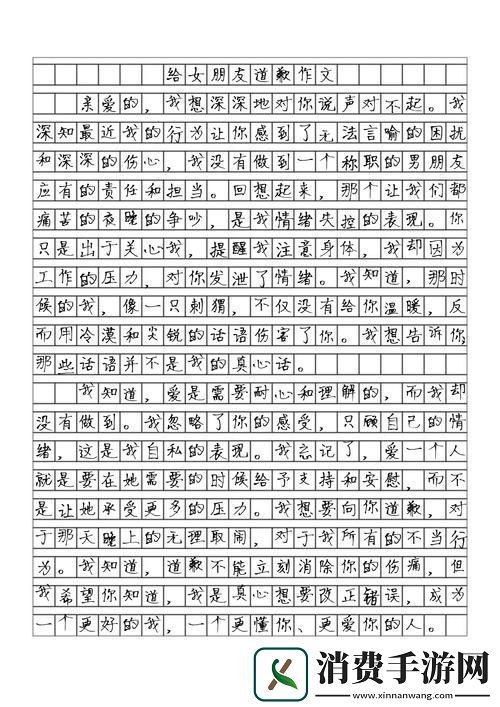 给女朋友道歉作文
亲爱的，我想深深地对你说声对不起。我
深知最近我的行为让你感到了无法言喻的困扰
和深深的伤心，我没有做到一个称职的男朋友
应有的责任和担当。回想起来，那个让我们都
痛苦的夜晚的争吵，是我情绪失控的表现。你
只是出于关心我，提醒我注意身体，我却因为
工作的压力，对你发泄了情绪。我知道，那时
候的我，像一只刺猬，不仅没有给你温暖，反
而用冷漠和尖锐的话语伤害了你。我想告诉你，
那些话语并不是我的真心话。
我知道，爱是需要耐心和理解的，而我却
没有做到。我忽略了你的感受，只顾自己的情
绪，这是我自私的表现。我忘记了，爱一个人
就是要在她需要的时候给予支持和安慰，而不
是让她承受更多的压力。我想要向你道歉，对
于那天晚上的无理取闹，对于我所有的不当行
为。我知道，道歉不能立刻消除你的伤痛，但
我希望你知道，我是真心想要改正错误，成为
一个更好的我，一个更懂你、更爱你的人。
消费手游网
www.xinnanwang.com